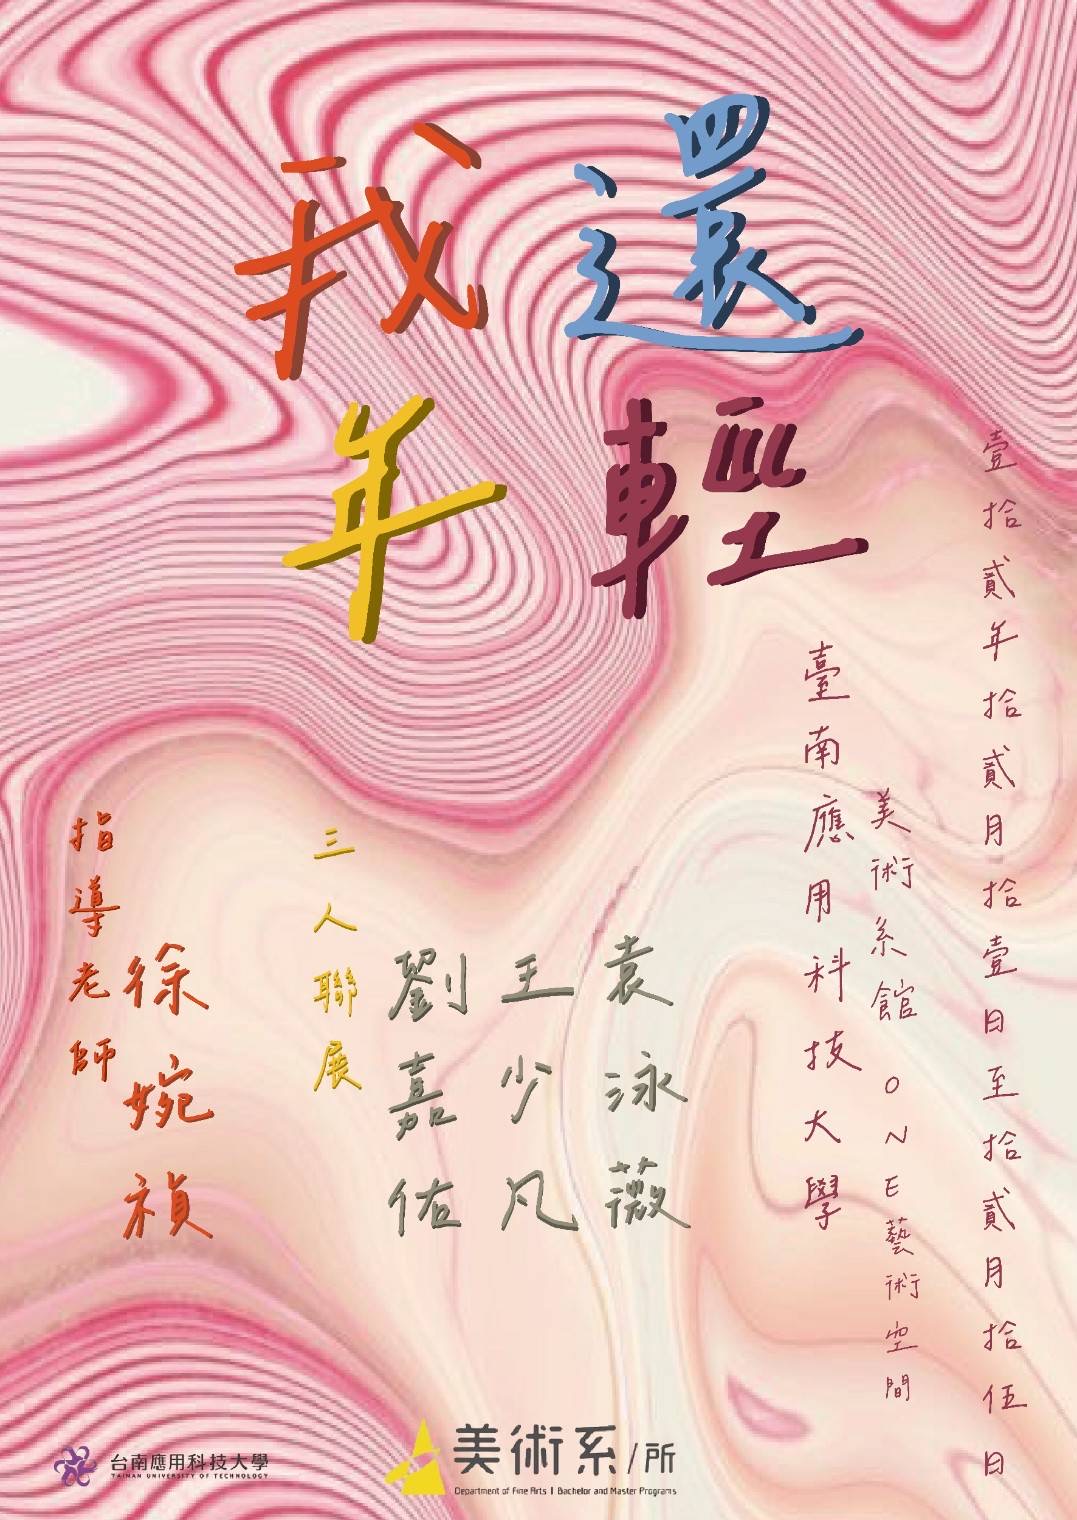 還輕
我年
壹拾貳年拾貳月拾壹日至拾貳月拾伍日
美術系館ONE藝術空間
臺南應用科技大學
袁泳薇
王少凡
劉嘉佑
三人聯展
徐婉禎
指導老師
台南應用科技大學
TAINAN UNIVERSITY OF TECHNOLOGY
美術系/所
Department of Fine Arts | Bachelor and Master Programs